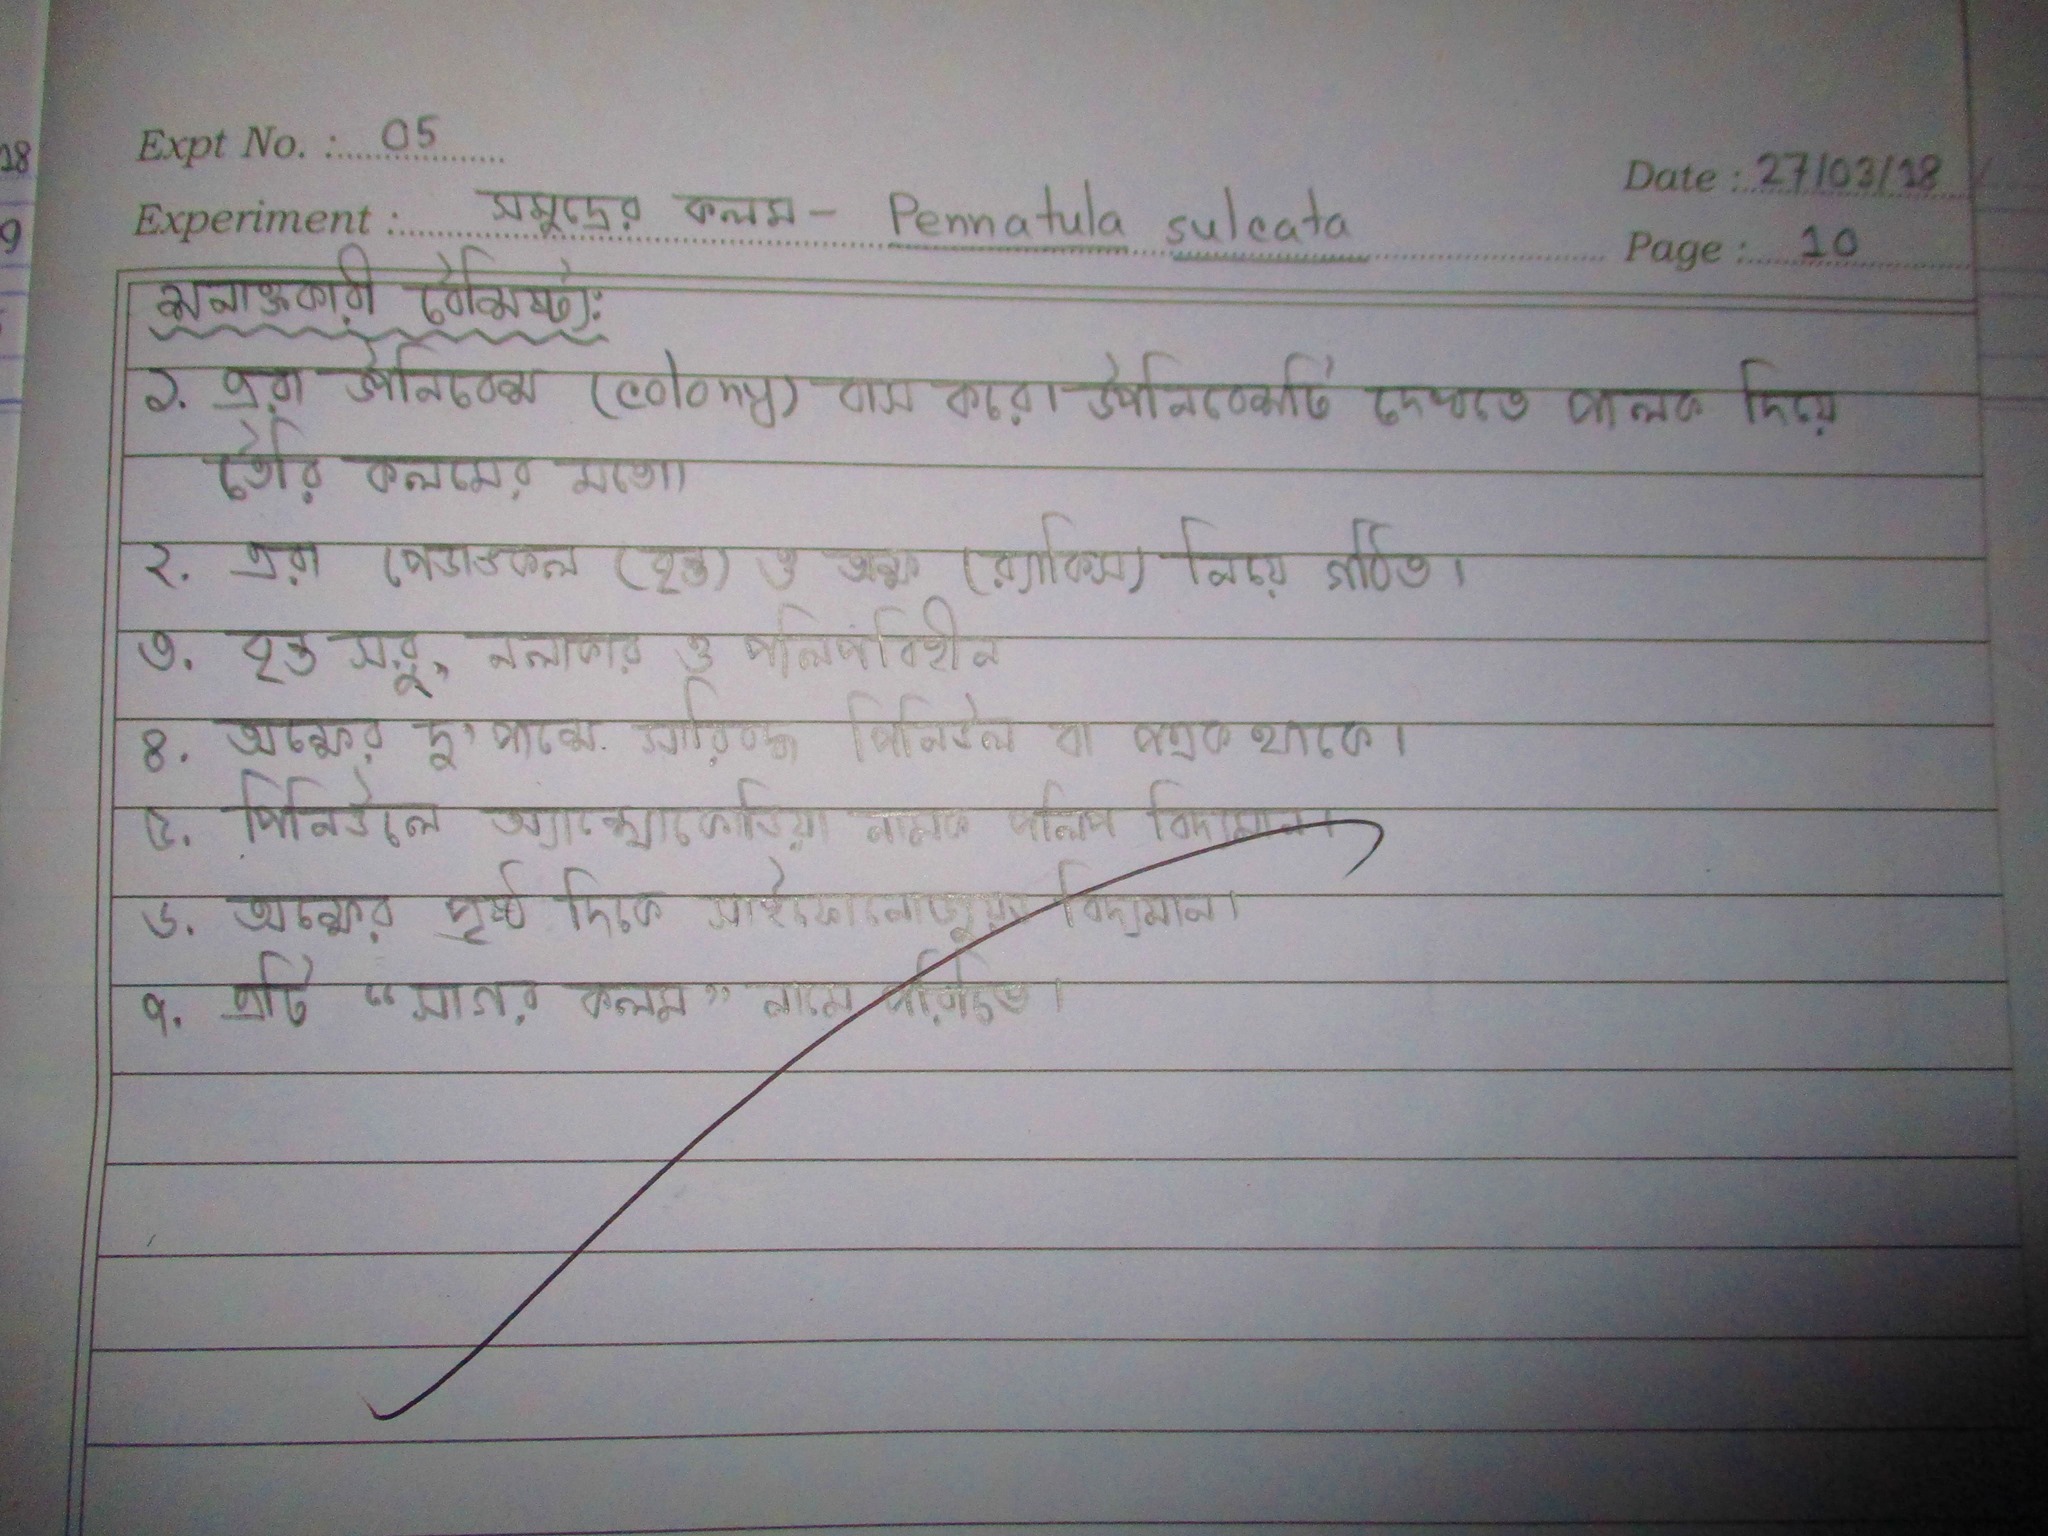 Expt No. : 05
Date : 27/03/18
Experiment : সমুদ্রের কলম - Pennatula sulcata
Page : 10
শনাক্তকারী বৈশিষ্ট্য:
১. এরা উপনিবেশ (colony) বাস করে। উপনিবেশটি দেখতে পালক দিয়ে
তৈরি কলমের মতো।
২. এরা পেডাঙ্কল (বৃন্ত) ও অক্ষ (র‍্যাকিস) নিয়ে গঠিত।
৩. বৃন্ত সরু, নলাকার ও পলিপবিহীন
৪. অক্ষের দু'পাশে সারিবদ্ধ পিনিউল বা পত্রক থাকে।
৫. পিনিউলে অ্যান্থোকোডিয়া নামক পলিপ বিদ্যমান।
৬. অক্ষের পৃষ্ঠ দিকে সাইফোনোজুয়েড বিদ্যমান।
৭. এটি “সাগর কলম” নামে পরিচিত।
18
9